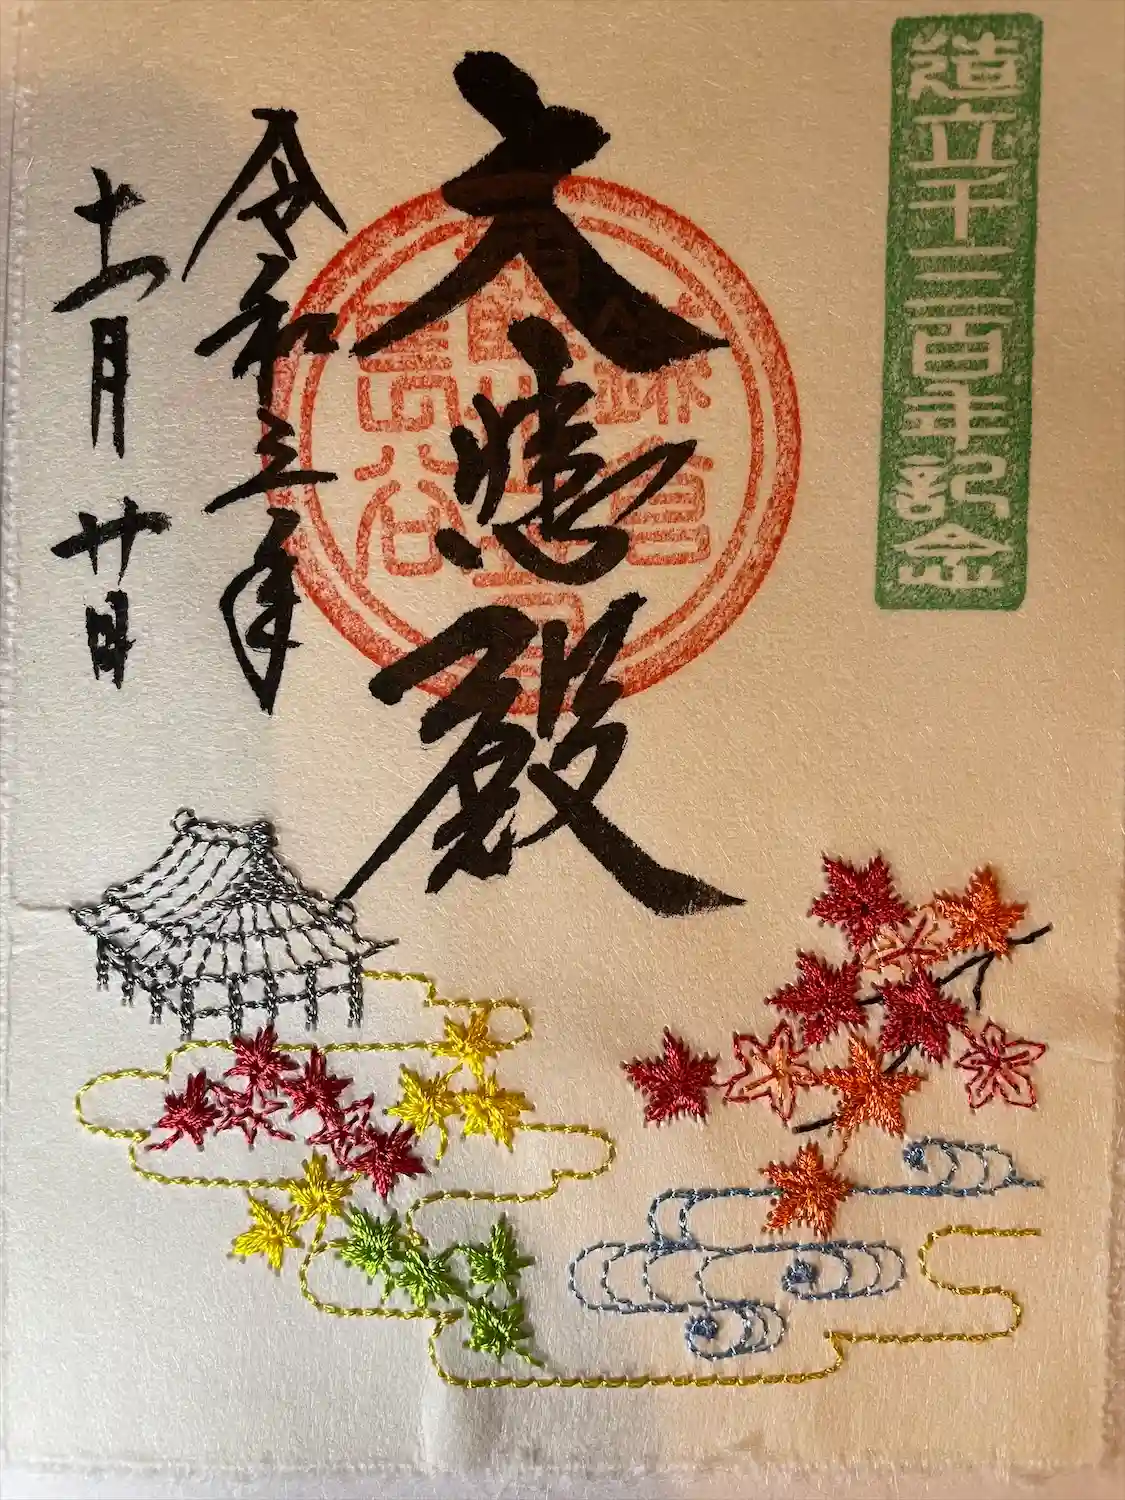 造立千三百年記念
大悲殿
鎌倉
長谷
令和三年
十一月廿日